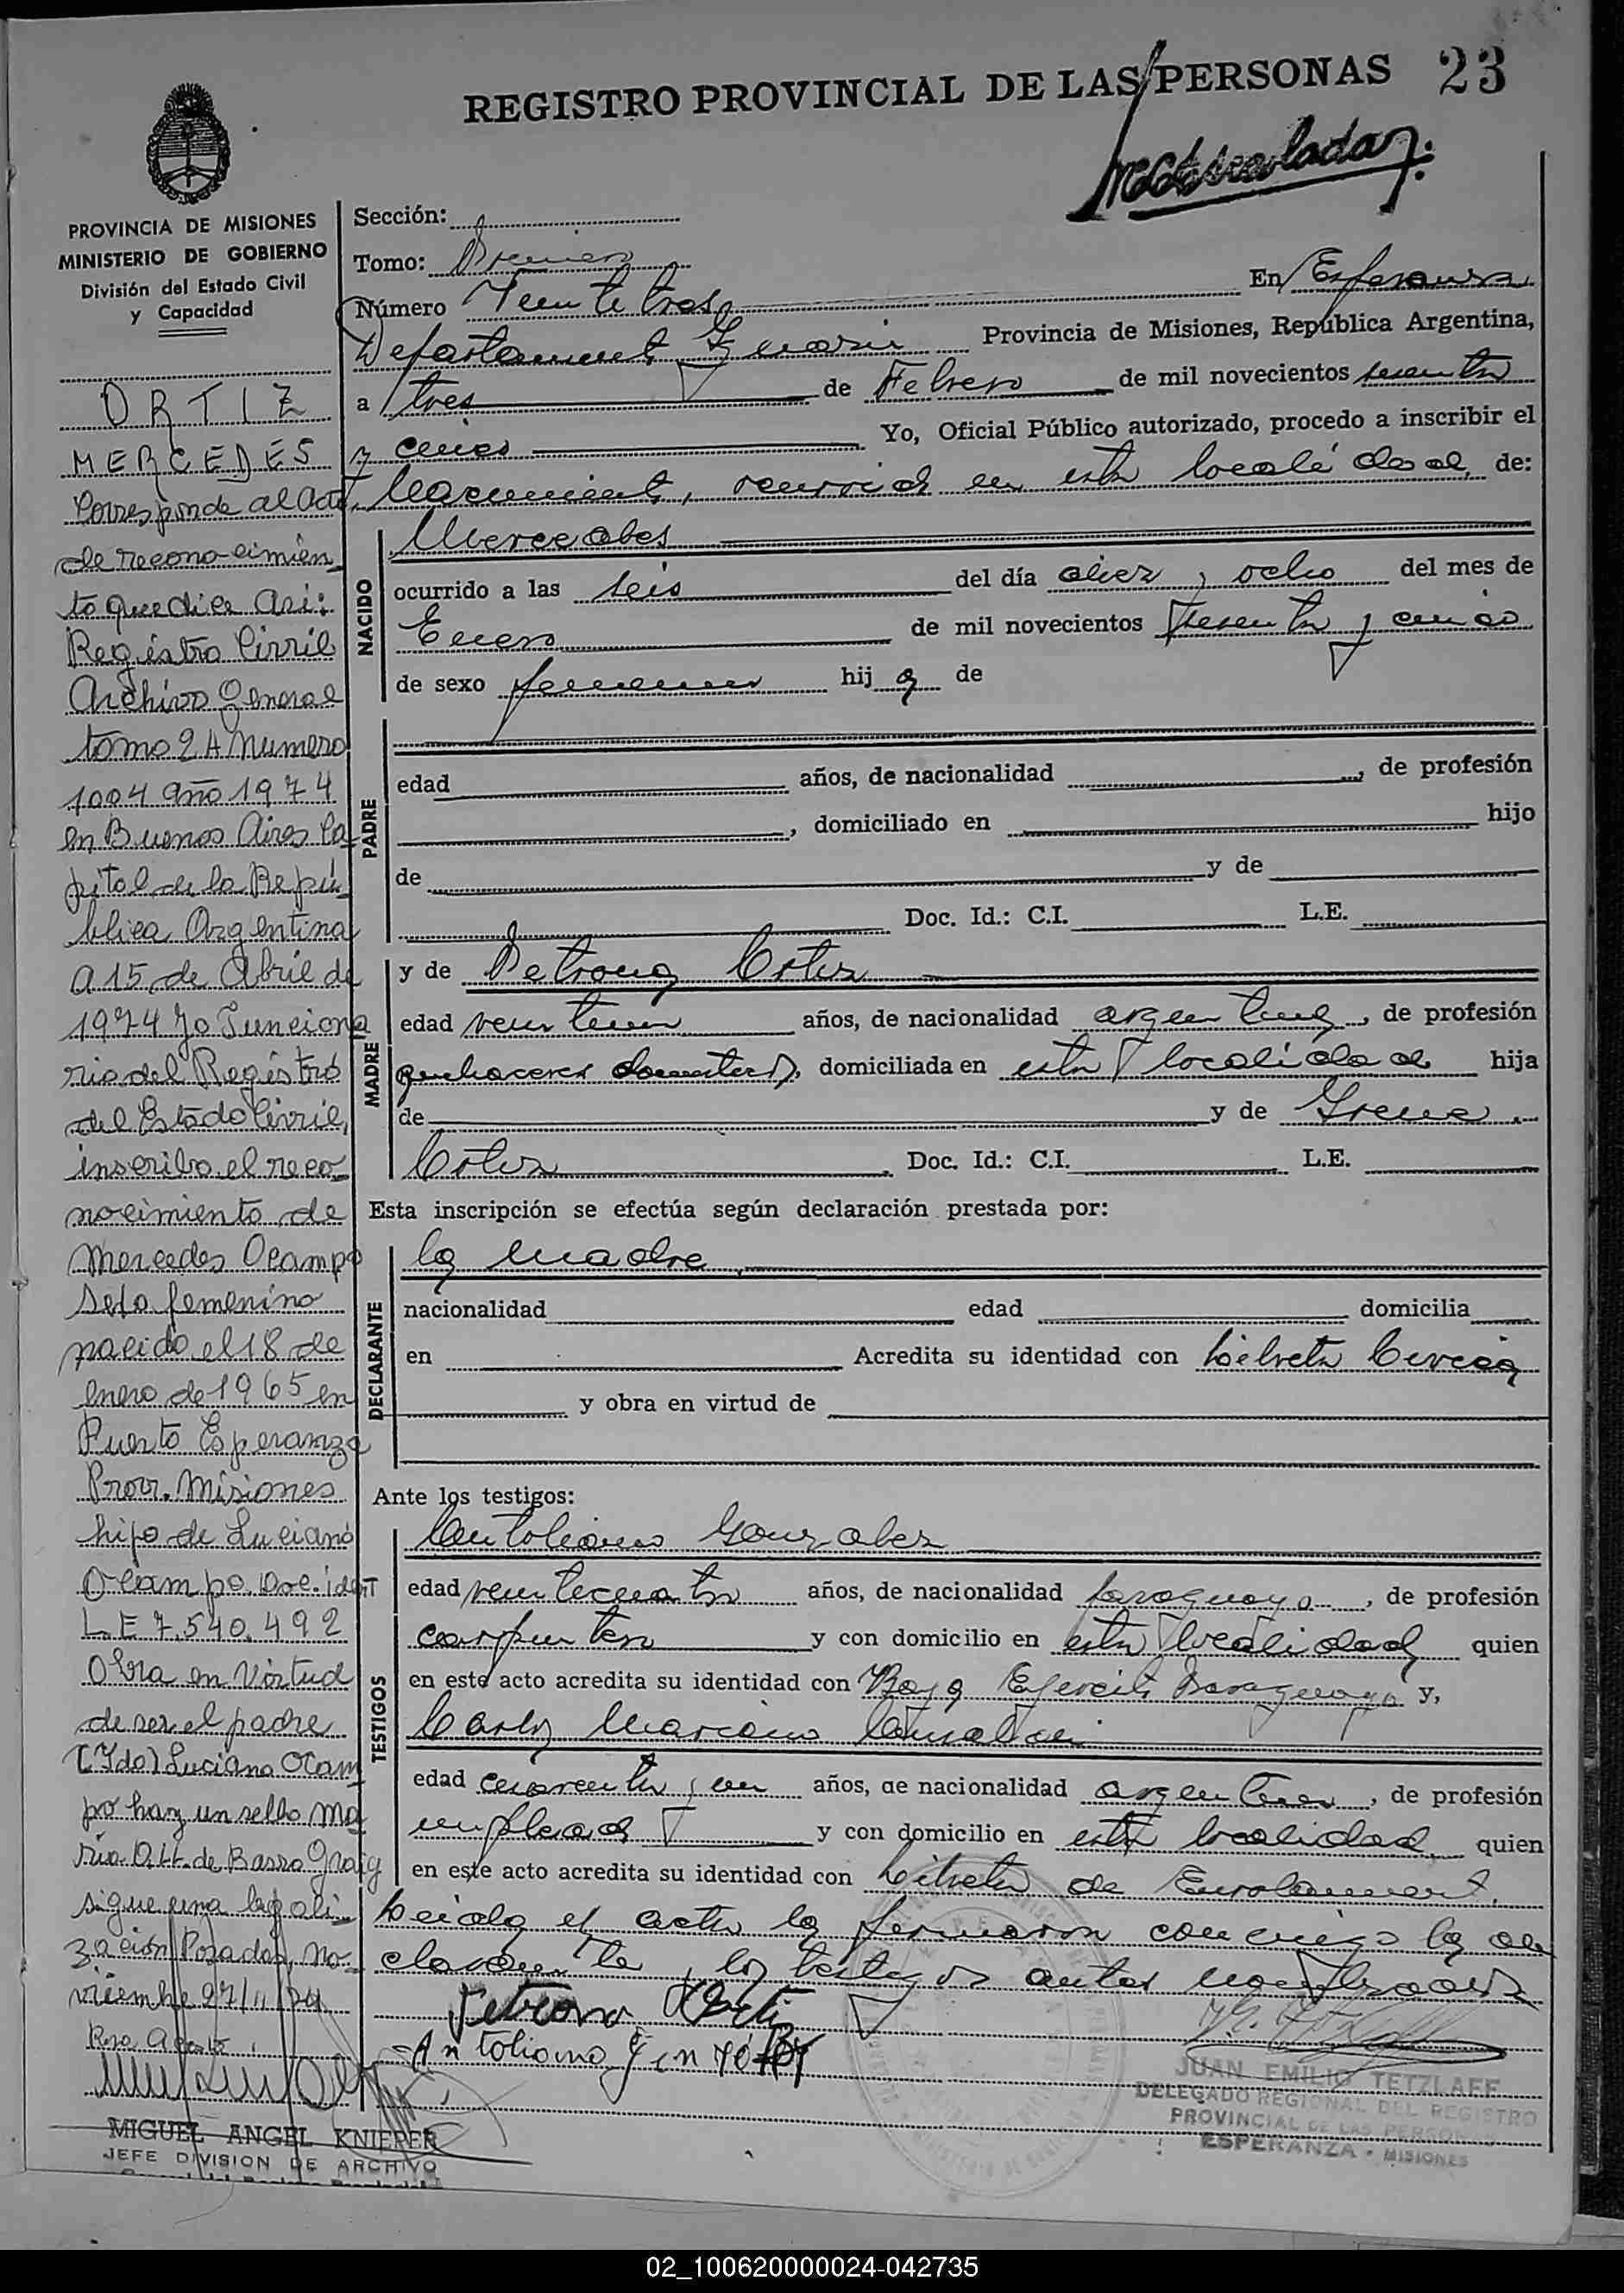 REGISTRO PROVINCIAL DE LAS PERSONAS 23
Matriculada
PROVINCIA DE MISIONES
MINISTERIO DE GOBIERNO
División del Estado Civil
y Capacidad
ORTIZ
MERCEDES
Corresponde al acta
de reconocimien
to que dice asi:
Registro Civil
Archivo General
tomo 2A Numero
1004 año 1974
en Buenos Aires Ca
pital de la Repú
blica Argentina
a 15 de Abril de
1974 yo Funciona
rio del Registro
del Estado Civil,
inscribo el reco
nocimiento de
Mercedes Ocampo
sexo femenino
nacido el 18 de
enero de 1965 en
Puerto Esperanza
Prov. Misiones
hijo de Luciano
Ocampo Doc. ident
L E 7.540.492
Obra en Virtud
de ser el padre
(Fdo) Luciano Ocam
po hay un sello Ma
ria O.LL. de Barra
sigue una legali
zación Posadas, No
viembre 27/11/74
MIGUEL ANGEL KNIERER
JEFE DIVISION DE ARCHIVO
Sección:
Tomo: Primero
Número Veintitres
En Esperanza
Departamento Iguazú Provincia de Misiones, República Argentina,
a tres de Febrero de mil novecientos sesenta
y cinco Yo, Oficial Público autorizado, procedo a inscribir el
Nacimiento, ocurrido en esta localidad, de:
NACIDO
Mercedes
ocurrido a las seis del día diez y ocho del mes de
Enero de mil novecientos sesenta y cinco
de sexo femenino hij a de
PADRE
edad años, de nacionalidad , de profesión
, domiciliado en hijo
de y de
Doc. Id.: C.I. L.E.
MADRE
y de Petrona Ortiz
edad veintiun años, de nacionalidad argentina, de profesión
quehaceres domesticos, domiciliada en esta localidad hija
de y de Irene
Ortiz Doc. Id.: C.I. L.E.
Esta inscripción se efectúa según declaración prestada por:
DECLARANTE
la madre
nacionalidad edad domicilia
en Acredita su identidad con Libreta Civica
y obra en virtud de
Ante los testigos:
TESTIGOS
Antoliano Gonzalez
edad veinticuatro años, de nacionalidad paraguaya, de profesión
carpintero y con domicilio en esta localidad quien
en este acto acredita su identidad con Baja Ejercito Paraguayo y,
Carlos Mariano
edad cuarenta y un años, de nacionalidad argentino, de profesión
empleado y con domicilio en esta localidad quien
en este acto acredita su identidad con Libreta de Enrolamiento.
Leida el acta la firmaron conmigo la de
clarante y los testigos antes nombrados
Petrona Ortiz
Antoliano
JUAN EMILIO TETZLAFF
DELEGADO REGIONAL DEL REGISTRO
PROVINCIAL DE LAS PERSONAS
ESPERANZA - MISIONES
02_100620000024-042735